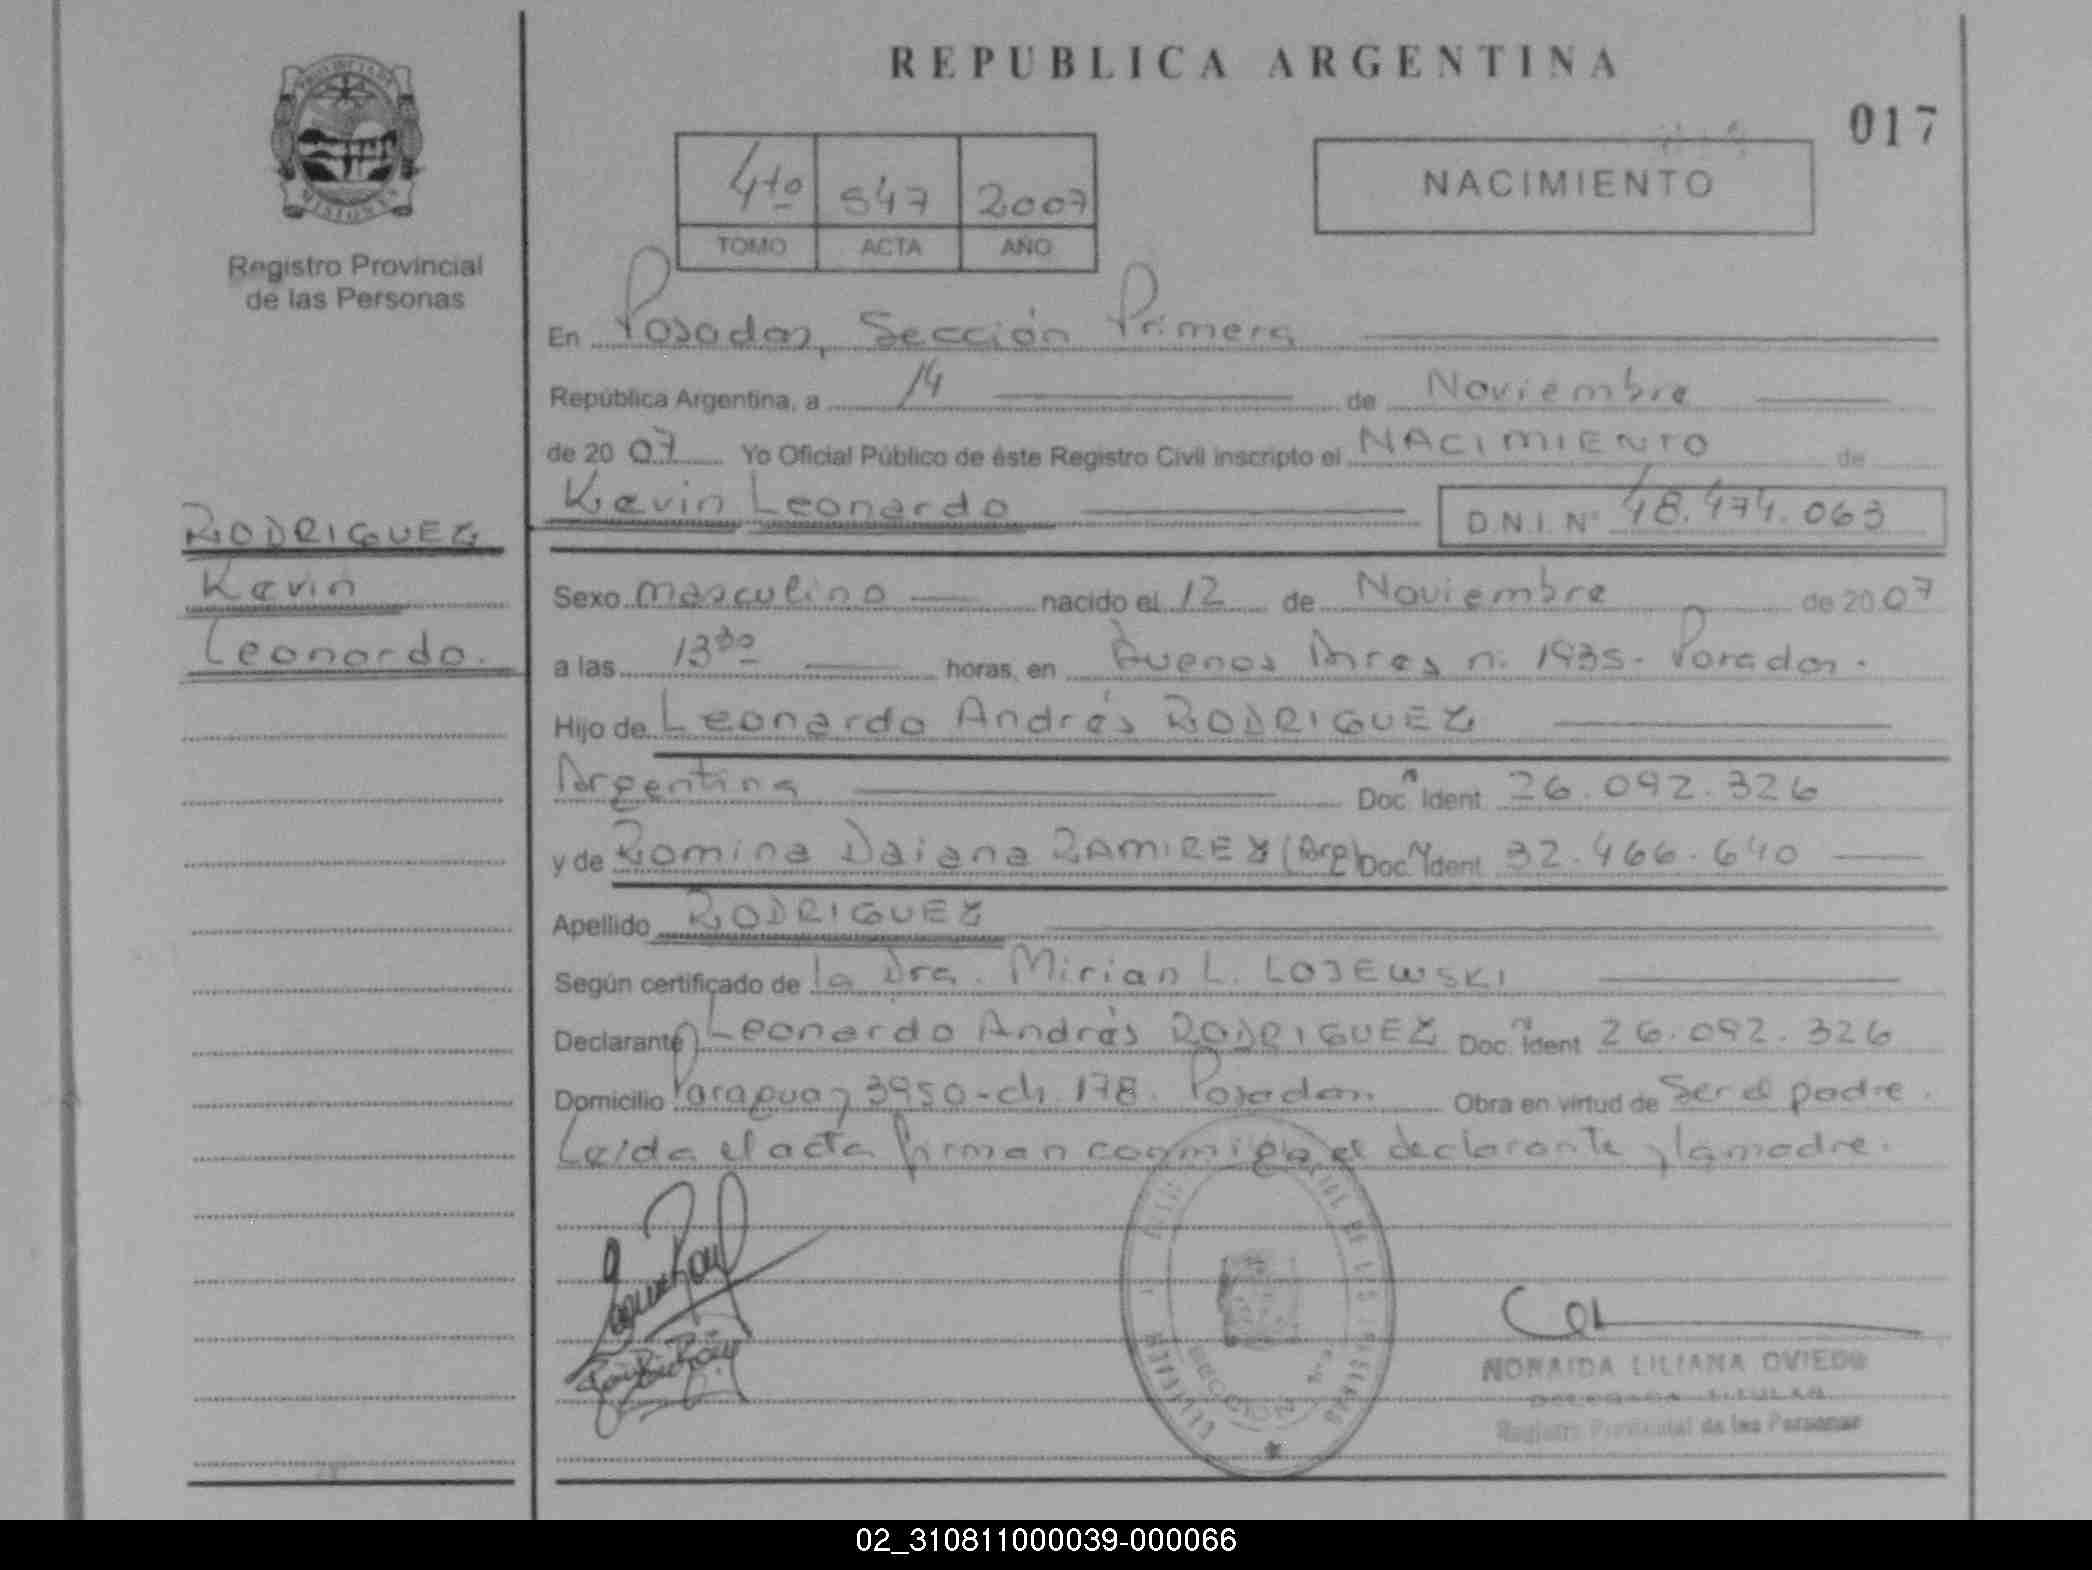 REPUBLICA ARGENTINA
017
PROVINCIA DE
MISIONES
Registro Provincial
de las Personas
4to 547 2007
TOMO ACTA AÑO
NACIMIENTO
En Posadas, Sección Primera
República Argentina, a 14 de Noviembre
de 2007 Yo Oficial Público de éste Registro Civil inscripto el NACIMIENTO de
Kevin Leonardo D.N.I. Nº 48.474.063
RODRIGUEZ
Kevin
Leonardo.
Sexo masculino nacido el 12 de Noviembre de 2007
a las 13 30 horas, en Buenos Aires n. 1935. Posadas.
Hijo de Leonardo Andrés RODRIGUEZ
Argentina Doc. Ident 26.092.326
y de Romina Daiana RAMIREZ (Arg) Doc. Ident 32.466.640
Apellido RODRIGUEZ
Según certificado de la Dra. Mirian L. LOJEWSKI
Declarante Leonardo Andrés RODRIGUEZ Doc. Ident 26.092.326
Domicilio Paraguay 3950-ch 178. Posadas. Obra en virtud de Ser el padre.
Leída el acta firman conmigo el declarante y la madre.
NORAIDA LILIANA OVIEDO
DELEGADA TITULAR
Registro Provincial de las Personas
02_310811000039-000066